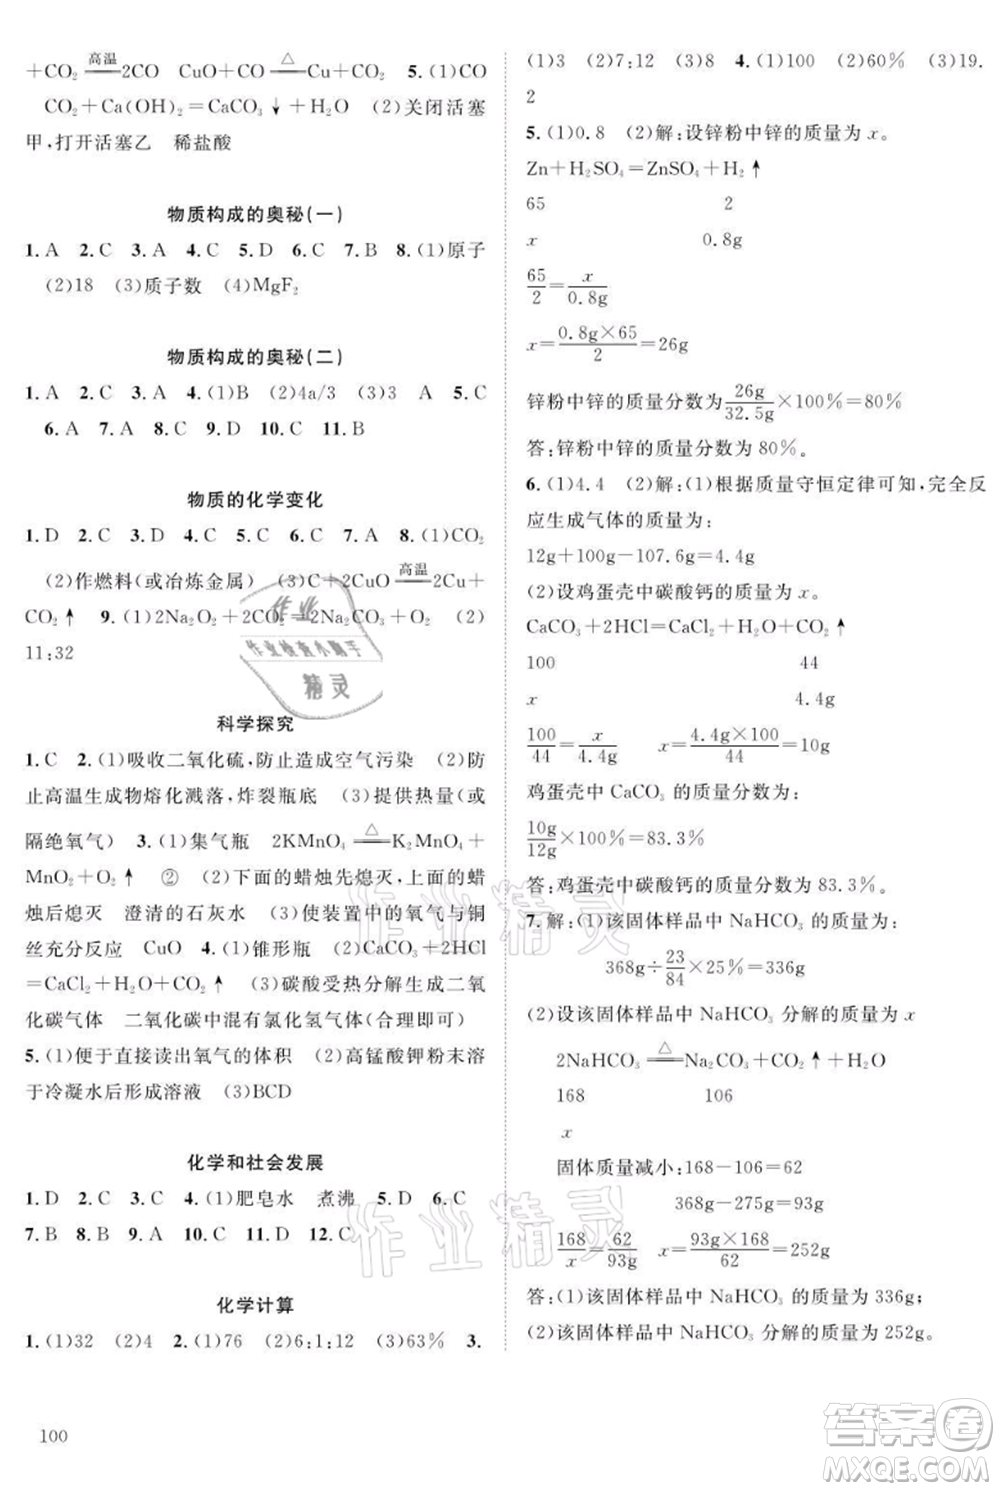 +CO₂ =高温= 2CO　CuO+CO =△= Cu+CO₂　5.(1)CO
CO₂+Ca(OH)₂=CaCO₃↓+H₂O　(2)关闭活塞
甲,打开活塞乙　稀盐酸
物质构成的奥秘(一)
1.A　2.C　3.A　4.C　5.D　6.C　7.B　8.(1)原子
(2)18　(3)质子数　(4)MgF₂
物质构成的奥秘(二)
1.A　2.C　3.A　4.(1)B　(2)4a/3　(3)3　A　5.C
6.A　7.A　8.C　9.D　10.C　11.B
物质的化学变化
1.D　2.C　3.D　4.C　5.D　6.B　7.A　8.(1)CO₂
(2)作燃料(或冶炼金属)　(3)C+2CuO =高温= 2Cu+
CO₂↑　9.(1)2Na₂O₂+2CO₂=2Na₂CO₃+O₂　(2)
11:32
科学探究
1.C　2.(1)吸收二氧化硫,防止造成空气污染　(2)防
止高温生成物熔化溅落,炸裂瓶底　(3)提供热量(或
隔绝氧气)　3.(1)集气瓶　2KMnO₄ =△= K₂MnO₄+
MnO₂+O₂↑　②　(2)下面的蜡烛先熄灭,上面的蜡
烛后熄灭　澄清的石灰水　(3)使装置中的氧气与铜
丝充分反应　CuO　4.(1)锥形瓶　(2)CaCO₃+2HCl
=CaCl₂+H₂O+CO₂↑　(3)碳酸受热分解生成二氧
化碳气体　二氧化碳中混有氯化氢气体(合理即可)
5.(1)便于直接读出氧气的体积　(2)高锰酸钾粉末溶
于冷凝水后形成溶液　(3)BCD
化学和社会发展
1.D　2.C　3.D　4.(1)肥皂水　煮沸　5.D　6.C
7.B　8.D　9.A　10.C　11.D　12.C
化学计算
1.(1)32　(2)4　2.(1)76　(2)6:1:12　(3)63%　3.
100
(1)3　(2)7:12　(3)8　4.(1)100　(2)60%　(3)19.
2
5.(1)0.8　(2)解:设锌粉中锌的质量为 x。
Zn+H₂SO₄=ZnSO₄+H₂↑
65　2
x　0.8g
65/2=x/0.8g
x=0.8g×65/2=26g
锌粉中锌的质量分数为26g/32.5g×100%=80%
答:锌粉中锌的质量分数为 80%。
6.(1)4.4　(2)解:(1)根据质量守恒定律可知,完全反
应生成气体的质量为:
12g+100g−107.6g=4.4g
(2)设鸡蛋壳中碳酸钙的质量为 x。
CaCO₃+2HCl=CaCl₂+H₂O+CO₂↑
100　44
x　4.4g
100/44=x/4.4g　x=4.4g×100/44=10g
鸡蛋壳中 CaCO₃ 的质量分数:
10g/12g×100%=83.3%
答:鸡蛋壳中碳酸钙的质量分数为 83.3%。
7.解:(1)该固体样品中 NaHCO₃ 的质量为:
368g÷23/84×25%=336g
(2)设该固体样品中 NaHCO₃ 分解的质量为 x
2NaHCO₃ =△= Na₂CO₃+CO₂↑+H₂O
168　106
x
固体质量减小:168−106=62
368g−275g=93g
168/x=62/93g　x=93g×168/62=252g
答:(1)该固体样品中 NaHCO₃ 的质量为 336g;
(2)该固体样品中 NaHCO₃ 分解的质量为 252g。
作业
作业检查小助手
精灵
作业精灵
作业精灵
答案卷
MXQE.COM